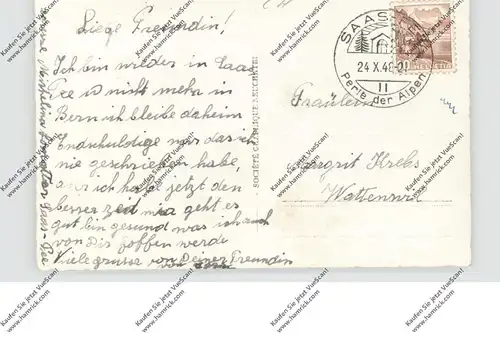 Liege Freundin!
Ich bin wilder in Saas
Fee is nicht mehr in
Bern ich bleibe daheim
Endschuldige mir das ich
nie geschrieben habe,
an ich hab jetzt den
besser zeit mir geht es
gut bin gesund was ich auch
von Dir hoffen werde
Viele grüsse von Deiner Freundin
Saas-Fee
SOCIÉTÉ GRAPHIQUE NEUCHÂTEL
SAAS
24 X.48-21
II
Perle der Alpen
HELVETIA
Fräulein
Margrit Krebs
Wattenwil
Kaufen Sie jetzt VauSee!
www.hamrick.com